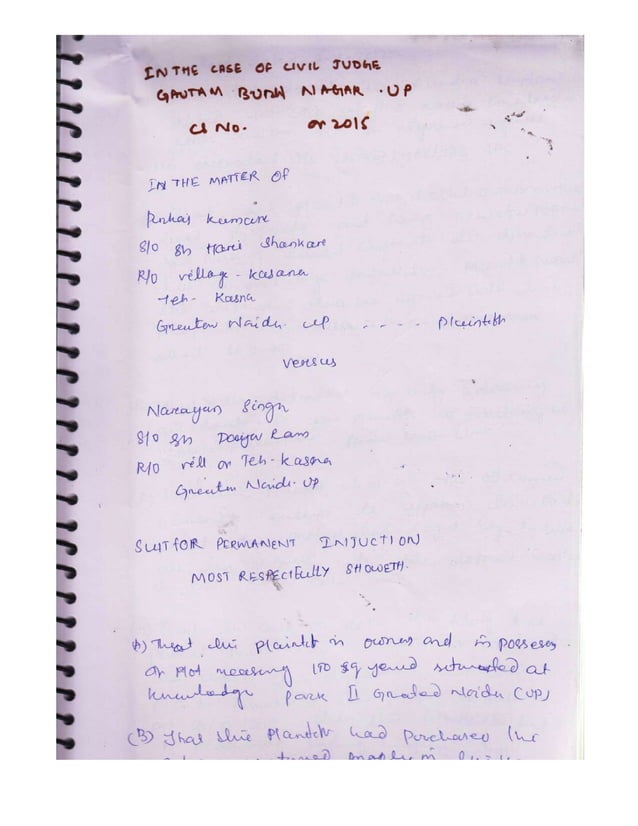 IN THE CASE OF CIVIL JUDGE
GAUTAM BUDH NAGAR . UP
CS No. or 2015
IN THE MATTER OF
Kumare
S/O Sh Hari Shankare
R/O village - Kasana
Teh - Kasna
Greater Noida. UP - - - - Plaintibh
versus
Narayan Singh
S/O Sh Ram
R/O vill or Teh - Kasna
Greater Noida. UP
SUIT FOR PERMANENT INJUCTION
MOST RESPECTFULLY SHOWETH.
A) That the plaintit is owner and in posseses
or Plot measing 150 sq yered situated at
knowledge park II Grated Noida (UP)
(B) That the Plantitt had purchased the